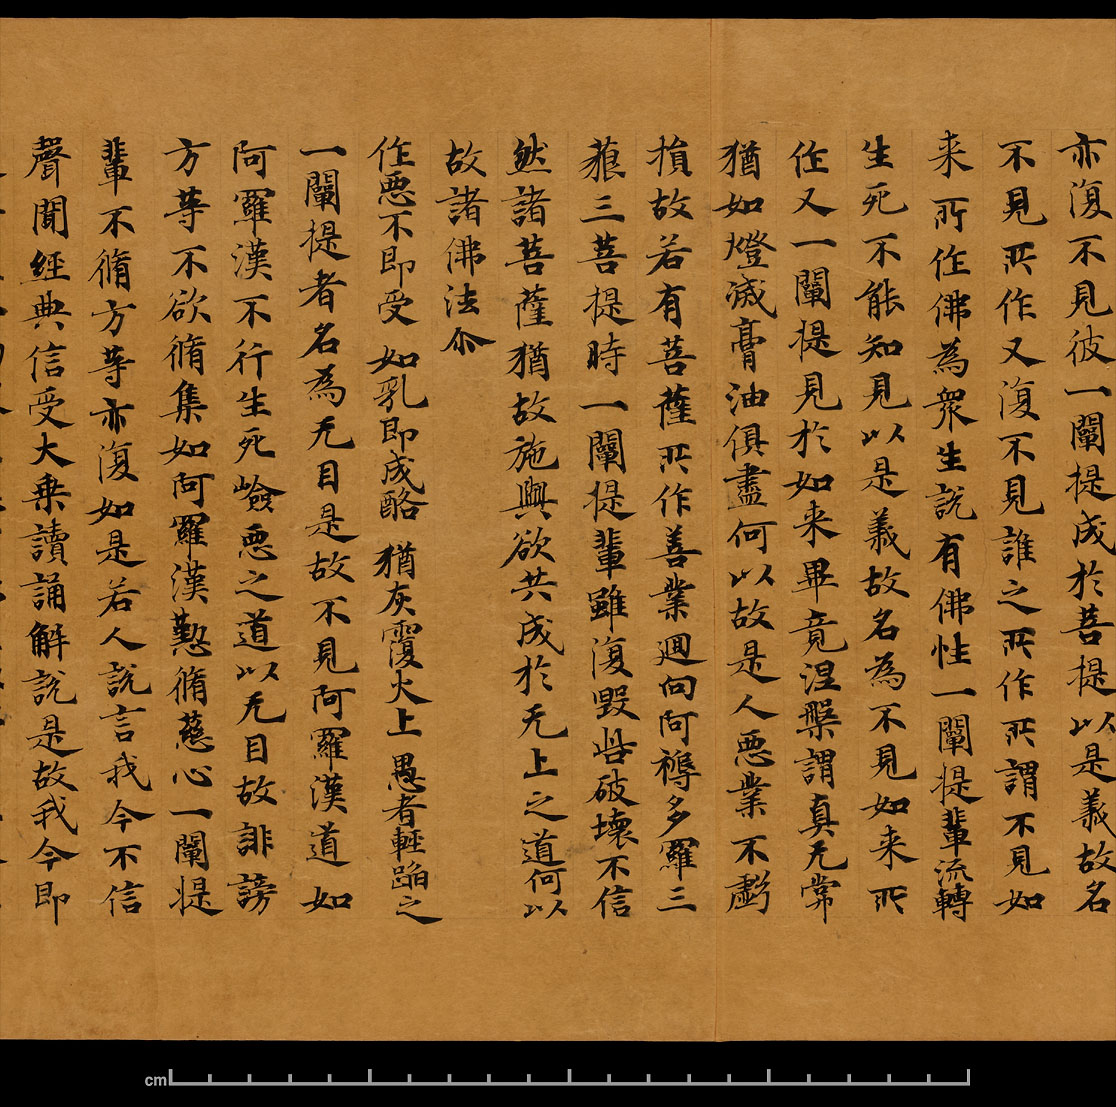 亦復不見彼一闡提成於菩提以是義故名
不見所作又復不見誰之所作所謂不見如
来所作佛為衆生説有佛性一闡提輩流轉
生死不能知見以是義故名為不見如来所
作又一闡提見於如来畢竟涅槃謂真无常
猶如燈滅膏油俱盡何以故是人惡業不虧
損故若有菩薩所作善業迴向阿耨多羅三
藐三菩提時一闡提輩雖復毀呰破壞不信
然諸菩薩猶故施與欲共成於无上之道何以
故諸佛法尒
作惡不即受 如乳即成酪 猶灰覆火上 愚者輕蹈之
一闡提者名為无目是故不見阿羅漢道如
阿羅漢不行生死嶮惡之道以无目故誹謗
方等不欲脩集如阿羅漢懃脩慈心一闡提
輩不脩方等亦復如是若人說言我今不信
聲聞經典信受大乗讀誦解説是故我今即